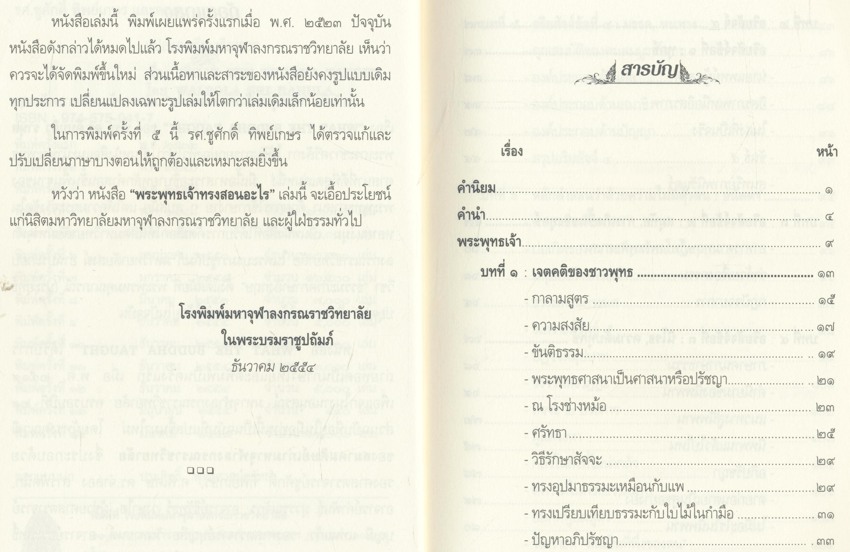 หนังสือเล่มนี้ พิมพ์เผยแพร่ครั้งแรกเมื่อ พ.ศ. ๒๕๒๓ ปัจจุบัน
หนังสือดังกล่าวได้หมดไปแล้ว โรงพิมพ์มหาจุฬาลงกรณราชวิทยาลัย เห็นว่า
ควรจะได้จัดพิมพ์ขึ้นใหม่ ส่วนเนื้อหาและสาระของหนังสือยังคงรูปแบบเดิม
ทุกประการ เปลี่ยนแปลงเฉพาะรูปเล่มให้โตกว่าเล่มเดิมเล็กน้อยเท่านั้น
ในการพิมพ์ครั้งที่ ๕ นี้ รศ.ชูศักดิ์ ทิพย์เกษร ได้ตรวจแก้และ
ปรับเปลี่ยนภาษาบางตอนให้ถูกต้องและเหมาะสมยิ่งขึ้น
หวังว่า หนังสือ “พระพุทธเจ้าทรงสอนอะไร” เล่มนี้ จะเอื้อประโยชน์
แก่นิสิตมหาวิทยาลัยมหาจุฬาลงกรณราชวิทยาลัย และผู้ใฝ่ธรรมทั่วไป
โรงพิมพ์มหาจุฬาลงกรณราชวิทยาลัย
ในพระบรมราชูปถัมภ์
ธันวาคม ๒๕๕๔
สารบัญ
เรื่อง หน้า
คำนิยม ๑
คำนำ ๔
พระพุทธเจ้า ๙
บทที่ ๑ : เจตคติของชาวพุทธ ๑๓
- กาลามสูตร ๑๕
- ความสงสัย ๑๗
- ขันติธรรม ๑๙
- พระพุทธศาสนาเป็นศาสนาหรือปรัชญา ๒๑
- ณ โรงช่างหม้อ ๒๓
- ศรัทธา ๒๕
- วิธีรักษาสัจจะ ๒๙
- ทรงอุปมาธรรมะเหมือนกับแพ ๒๙
- ทรงเปรียบเทียบธรรมะกับใบไม้ในกำมือ ๓๑
- ปัญหาอภิปรัชญา ๓๓